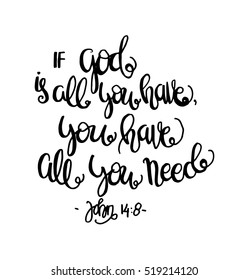 IF God
is all you have,
you have
all you need
- John 14:8 -
519214120